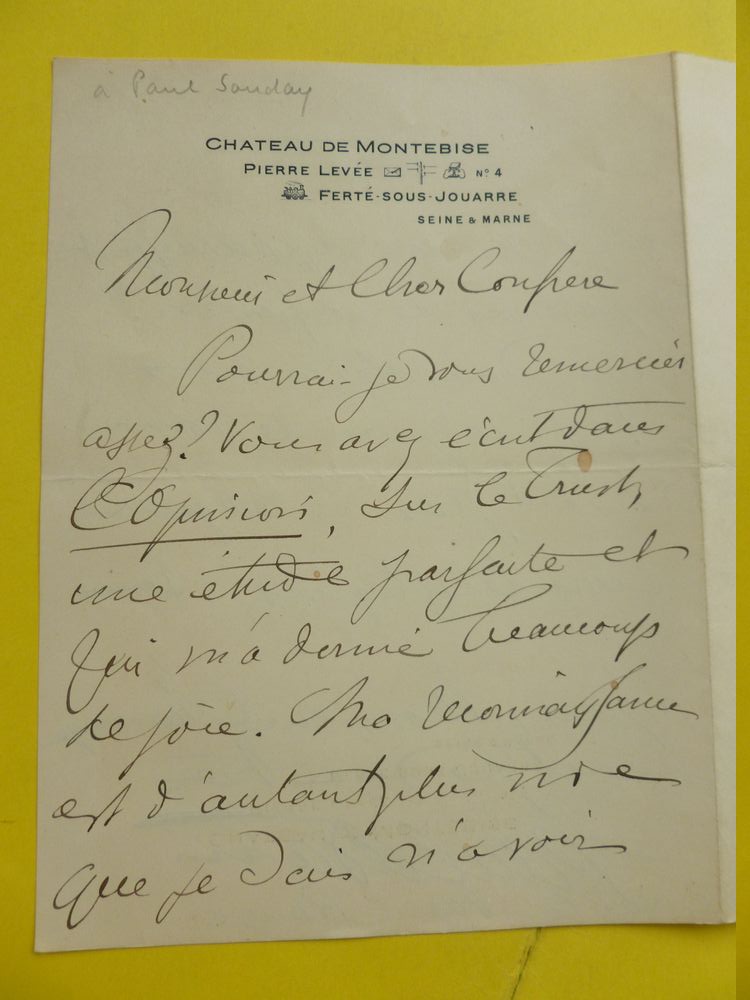 à Paul Souday
CHATEAU DE MONTEBISE
PIERRE LEVÉE N° 4
FERTÉ-SOUS-JOUARRE
SEINE & MARNE
Monsieur et Cher Confrere
Pourrai-je vous remercier
assez? Vous avez écrit dans
L'Opinion, sur le Trust,
une étude parfaite et
qui m'a donné beaucoup
de joie. Ma reconnaissance
est d'autant plus vive
que je dais n'avoir